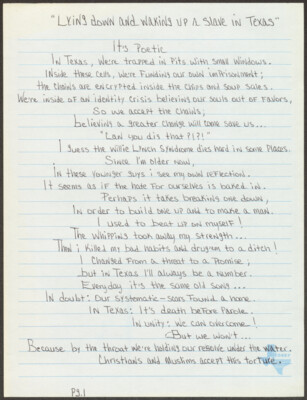 "Lying down and waking up a slave in Texas"
It's Poetik
In Texas, We're trapped in Pits with small windows.
Inside these cells, We're Funding our own imPrisonment;
the chains are encrypted inside the chips and soup sales.
We're inside of an identity Crisis believing our souls out of Favors,
So we accept the Chains;
believing a greater Change will come save us...
"Can you dis that?!?!"
I guess the Willie Lynch Syndrome dies hard in some Places.
Since I'm older now,
in these younger guys i see my own reflection.
It seems as if the hate for ourselves is baked in.
Perhaps it takes breaking one down,
In order to build one up and to make a man.
I used to beat up on myself!
The Whipping took away my strength...
Then i killed my bad habits and drug em to a ditch!
I Changed From a threat to a Promise,
but in Texas I'll always be a number.
Everyday it's the same old song...
In doubt: Our systematic-scars Found a home.
In Texas: It's death beFore Parole.
In unity: we can overcome!
But we won't...
Because by the throat We're holding our resolve under the water.
Christians and Muslims accept this torture.
Pg.1